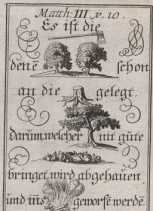 Matth. III. v. 10.
Es ist die
denē schon
an die gelegt.
darum, welcher nit gute
bringet, wird abgehauen
und ins geworfē werdē.